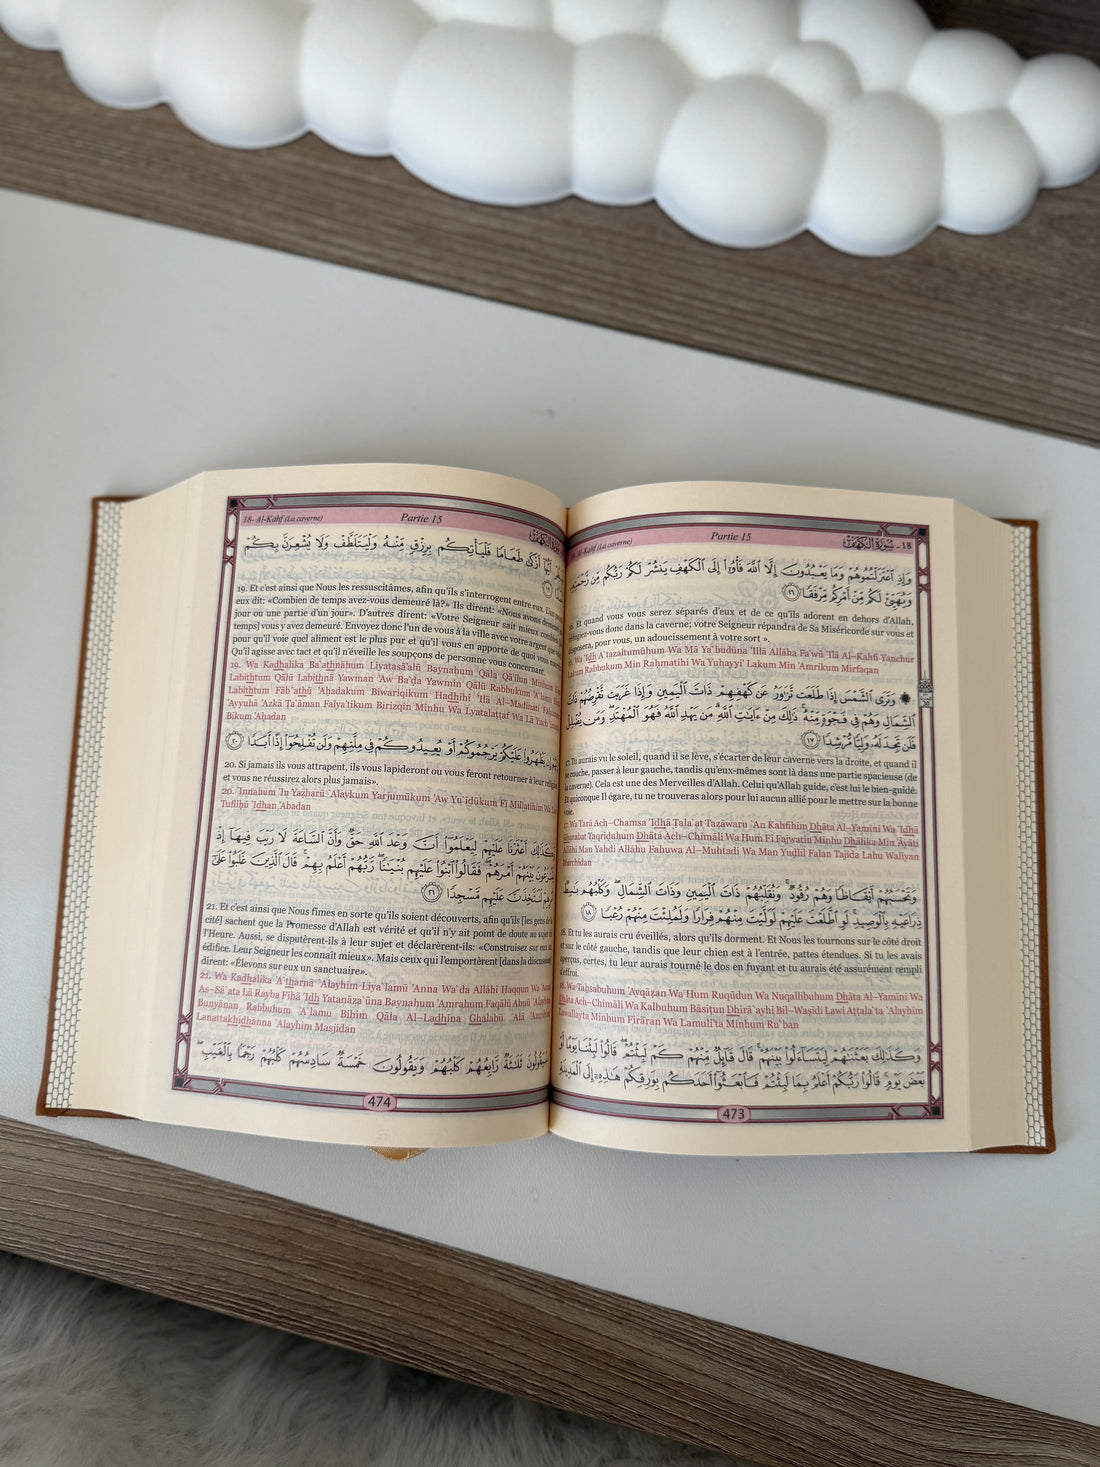 18- Al-Kahf (La caverne)
Partie 15
18 - سُورَةُ الكَهْفِ
وَإِذِ ٱعْتَزَلْتُمُوهُمْ وَمَا يَعْبُدُونَ إِلَّا ٱللَّهَ فَأْوُۥٓا۟ إِلَى ٱلْكَهْفِ يَنشُرْ لَكُمْ رَبُّكُم مِّن رَّحْمَتِهِۦ
وَيُهَيِّئْ لَكُم مِّنْ أَمْرِكُم مِّرْفَقًا ١٦
Et quand vous vous serez séparés d'eux et de ce qu'ils adorent en dehors d'Allah,
réfugiez-vous donc dans la caverne; votre Seigneur répandra de Sa Miséricorde sur vous et
disposera, pour vous, un adoucissement à votre sort ».
Wa 'Idh A`tazaltumūhum Wa Mā Ya`budūna 'Illā Allāha Fa'wū 'Ilā Al-Kahfi Yanchur
Lakum Rabbukum Min Raḥmatihi Wa Yuhayyi' Lakum Min 'Amrikum Mirfaqan
وَتَرَى ٱلشَّمْسَ إِذَا طَلَعَت تَّزَٰوَرُ عَن كَهْفِهِمْ ذَاتَ ٱلْيَمِينِ وَإِذَا غَرَبَت تَّقْرِضُهُمْ ذَاتَ
ٱلشِّمَالِ وَهُمْ فِى فَجْوَةٍ مِّنْهُ ذَٰلِكَ مِنْ ءَايَٰتِ ٱللَّهِ مَن يَهْدِ ٱللَّهُ فَهُوَ ٱلْمُهْتَدِ وَمَن يُضْلِلْ
فَلَن تَجِدَ لَهُۥ وَلِيًّا مُّرْشِدًا ١٧
17. Tu aurais vu le soleil, quand il se lève, s'écarter de leur caverne vers la droite, et quand il
se couche, passer à leur gauche, tandis qu'eux-mêmes sont là dans une partie spacieuse (de
la caverne). Cela est une des Merveilles d'Allah. Celui qu'Allah guide, c'est lui le bien-guidé.
Et quiconque Il égare, tu ne trouveras alors pour lui aucun allié pour le mettre sur la bonne
voie.
17. Wa Tará Ach-Chamsa 'Idhā Ṭala`at Tazāwaru `An Kahfihim Dhāta Al-Yamīni Wa 'Idhā
Gharabat Taqriḍuhum Dhāta Ach-Chimāli Wa Hum Fī Fajwatin Minhu Dhālika Min 'Āyāti
Allāhi Man Yahdi Allāhu Fahuwa Al-Muhtadi Wa Man Yuḍlil Falan Tajida Lahu Walīyan
Murchidan
وَتَحْسَبُهُمْ أَيْقَاظًا وَهُمْ رُقُودٌ وَنُقَلِّبُهُمْ ذَاتَ ٱلْيَمِينِ وَذَاتَ ٱلشِّمَالِ وَكَلْبُهُم بَٰسِطٌ
ذِرَاعَيْهِ بِٱلْوَصِيدِ لَوِ ٱطَّلَعْتَ عَلَيْهِمْ لَوَلَّيْتَ مِنْهُمْ فِرَارًا وَلَمُلِئْتَ مِنْهُمْ رُعْبًا ١٨
18. Et tu les aurais cru éveillés, alors qu'ils dorment. Et Nous les tournons sur le côté droit
et sur le côté gauche, tandis que leur chien est à l'entrée, pattes étendues. Si tu les avais
aperçus, certes, tu leur aurais tourné le dos en fuyant et tu aurais été assurément rempli
d'effroi.
18. Wa Taḥsabuhum 'Ayqāẓan Wa Hum Ruqūdun Wa Nuqallibuhum Dhāta Al-Yamīni Wa
Dhāta Ach-Chimāli Wa Kalbuhum Bāsiṭun Dhirā`ayhi Bil-Waṣīdi Lawi Aṭṭala`ta `Alayhim
Lawallayta Minhum Firāran Wa Lamuli'ta Minhum Ru`ban
وَكَذَٰلِكَ بَعَثْنَٰهُمْ لِيَتَسَآءَلُوا۟ بَيْنَهُمْ قَالَ قَآئِلٌ مِّنْهُمْ كَمْ لَبِثْتُمْ قَالُوا۟ لَبِثْنَا يَوْمًا أَوْ
بَعْضَ يَوْمٍ قَالُوا۟ رَبُّكُمْ أَعْلَمُ بِمَا لَبِثْتُمْ فَٱبْعَثُوٓا۟ أَحَدَكُم بِوَرِقِكُمْ هَٰذِهِۦٓ إِلَى ٱلْمَدِينَةِ
473
18- Al-Kahf (La caverne)
Partie 15
أَيُّهَآ أَزْكَىٰ طَعَامًا فَلْيَأْتِكُم بِرِزْقٍ مِّنْهُ وَلْيَتَلَطَّفْ وَلَا يُشْعِرَنَّ بِكُمْ
19. Et c'est ainsi que Nous les ressuscitâmes, afin qu'ils s'interrogent entre eux. L'un
eux dit: «Combien de temps avez-vous demeuré là?» Ils dirent: «Nous avons demeuré
jour ou une partie d'un jour». D'autres dirent: «Votre Seigneur sait mieux combien
temps] vous y avez demeuré. Envoyez donc l'un de vous à la ville avec votre argent que
pour qu'il voie quel aliment est le plus pur et qu'il vous en apporte de quoi vous nourrir.
Qu'il agisse avec tact et qu'il n'éveille les soupçons de personne vous concernant.
19. Wa Kadhālika Ba`athnāhum Liyatasā'alū Baynahum Qāla Qā'ilun Minhum Kam
Labithtum Qālū Labithnā Yawman 'Aw Ba`ḍa Yawmin Qālū Rabbukum 'A`lamu Bimā
Labithtum Fāb`athū 'Aḥadakum Biwariqikum Hadhihi 'Ilā Al-Madīnati Falyanẓur
'Ayyuhā 'Azká Ṭa`āman Falya'tikum Birizqin Minhu Wa Lyatalaṭṭaf Wa Lā Yuch`iranna
Bikum 'Aḥadan
إِن يَظْهَرُوا۟ عَلَيْكُمْ يَرْجُمُوكُمْ أَوْ يُعِيدُوكُمْ فِى مِلَّتِهِمْ وَلَن تُفْلِحُوٓا۟ إِذًا أَبَدًا ٢٠
20. Si jamais ils vous attrapent, ils vous lapideront ou vous feront retourner à leur religion,
et vous ne réussirez alors plus jamais».
20. 'Innahum 'In Yaẓharū `Alaykum Yarjumūkum 'Aw Yu`īdūkum Fī Millatihim Wa Lan
Tufliḥū 'Idhan 'Abadan
وَكَذَٰلِكَ أَعْثَرْنَا عَلَيْهِمْ لِيَعْلَمُوٓا۟ أَنَّ وَعْدَ ٱللَّهِ حَقٌّ وَأَنَّ ٱلسَّاعَةَ لَا رَيْبَ فِيهَآ إِذْ
يَتَنَٰزَعُونَ بَيْنَهُمْ أَمْرَهُمْ فَقَالُوا۟ ٱبْنُوا۟ عَلَيْهِم بُنْيَٰنًا رَّبُّهُمْ أَعْلَمُ بِهِمْ قَالَ ٱلَّذِينَ غَلَبُوا۟ عَلَىٰٓ
أَمْرِهِمْ لَنَتَّخِذَنَّ عَلَيْهِم مَّسْجِدًا ٢١
21. Et c'est ainsi que Nous fîmes en sorte qu'ils soient découverts, afin qu'ils [les gens de la
cité] sachent que la Promesse d'Allah est vérité et qu'il n'y ait point de doute au sujet de
l'Heure. Aussi, se disputèrent-ils à leur sujet et déclarèrent-ils: «Construisez sur eux un
édifice. Leur Seigneur les connaît mieux». Mais ceux qui l'emportèrent [dans la discussion]
dirent: «Élevons sur eux un sanctuaire».
21. Wa Kadhālika 'A`tharnā `Alayhim Liya`lamū 'Anna Wa`da Allāhi Ḥaqqun Wa Anna
As-Sā`ata Lā Rayba Fīhā 'Idh Yatanāza`ūna Baynahum 'Amrahum Faqālū Abnū `Alayhim
Bunyānan Rabbuhum 'A`lamu Bihim Qāla Al-Ladhīna Ghalabū `Alá 'Amrihim
Lanattakhidhanna `Alayhim Masjidan
سَيَقُولُونَ ثَلَٰثَةٌ رَّابِعُهُمْ كَلْبُهُمْ وَيَقُولُونَ خَمْسَةٌ سَادِسُهُمْ كَلْبُهُمْ رَجْمًۢا بِٱلْغَيْبِ
474